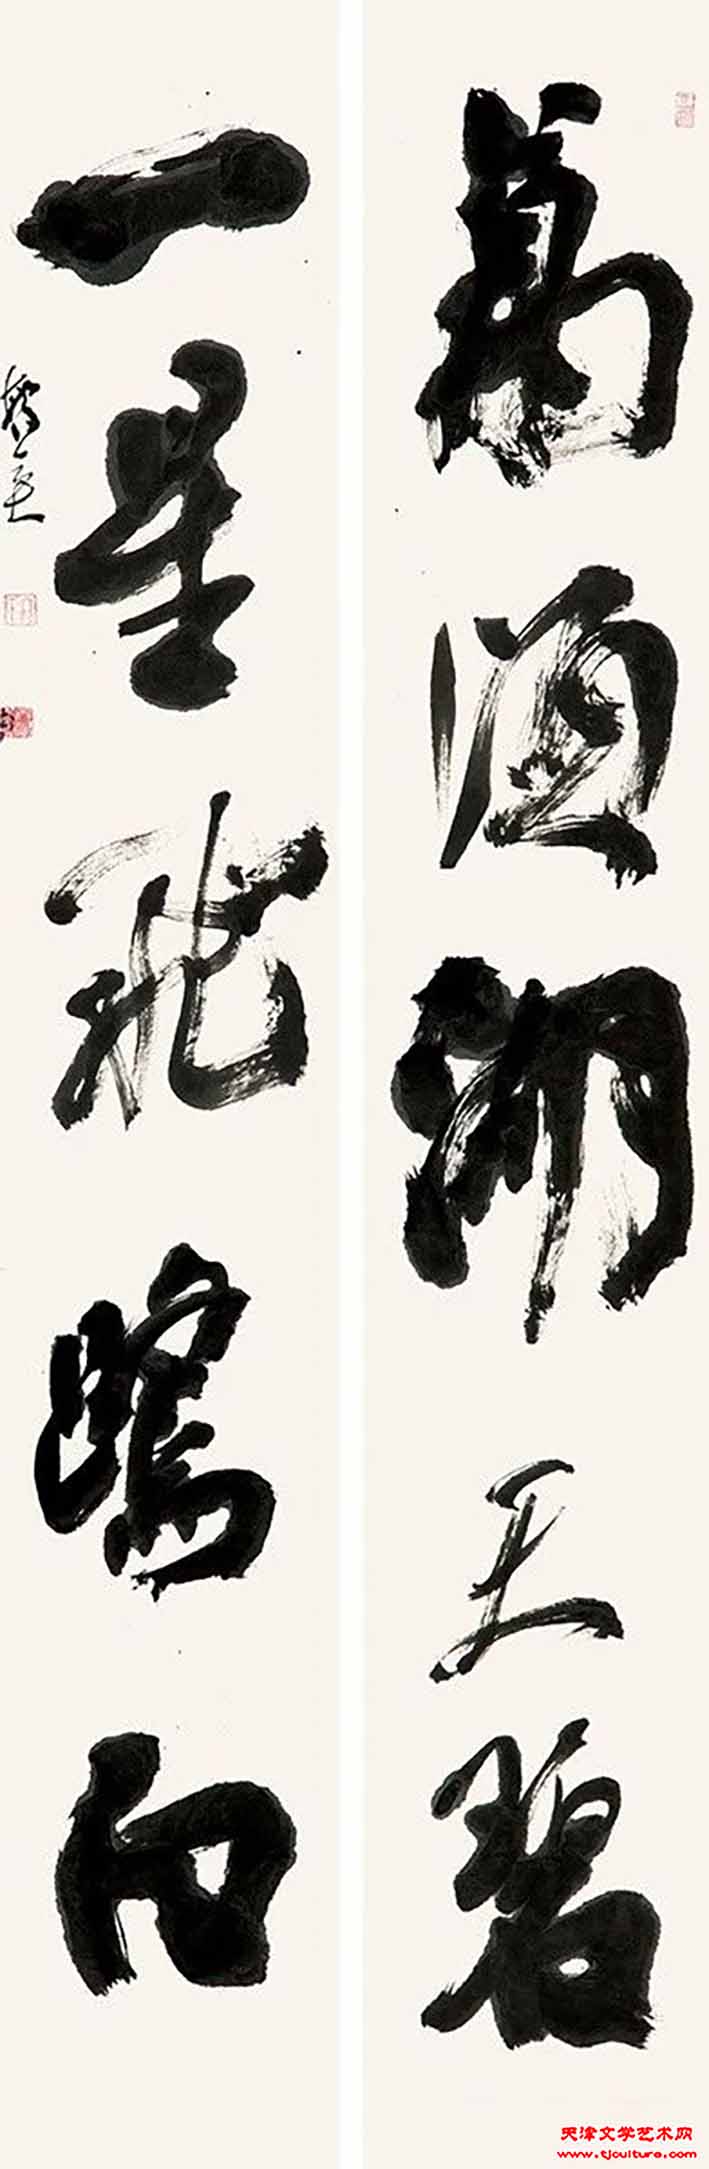 萬頃湖天碧
一星飛鷺白
天津文学艺术网
www.tjculture.com